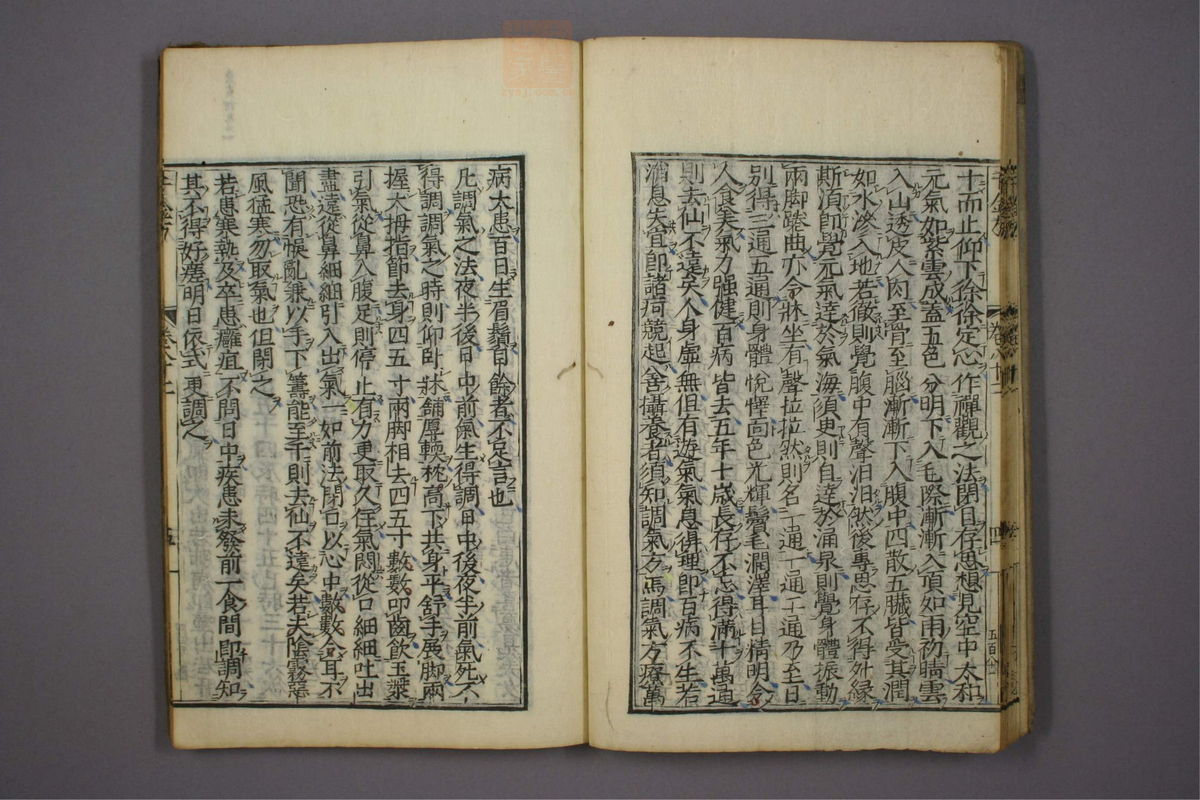 十而止仰下徐徐定心作禪觀之法閉目存思想見空中太和
元氣如紫雲成蓋五色分明下入毛際漸漸入頂如雨初晴雲
入山透皮入肉至骨至腦漸漸下入腹中四散五臟皆受其潤
如水滲入地若徹則覺腹中有聲汩汩然後專思存不得外緣
斯須即覺元氣達於氣海須臾則自達於涌泉則覺身體振動
兩脚踡曲亦令牀坐有聲拉拉然則名一通一通二通乃至日
別得三通五通則身體悅懌面色光輝鬢毛潤澤耳目精明令
人食美氣力強健百病皆去五年十歲長存不忘得滿千萬通
則去仙不遠矣人身虛無但有遊氣氣息得理即百病不生若
消息失宜即諸痾競起善攝養者須知調氣方焉調氣方療萬
病大患百日生眉鬚自餘者不足言也
凡調氣之法夜半後日中前氣生得調日中後夜半前氣死不
得調調氣之時則仰臥牀鋪厚輭枕高下共身平舒手展脚兩
握大拇指節去身四五寸兩脚相去四五寸數數叩齒飲玉漿
引氣從鼻入腹足則停止有力更取久住氣悶從口細細吐出
盡遠從鼻細細引入出氣一如前法閉口以心中數數令耳不
聞恐有悞亂兼以手下籌能至千則去仙不遠矣若天陰霧
風猛寒勿取氣也但閉之
若患寒熱及卒患癰疽不問日中疾患未發前一食間即調如
其不得好瘥明日依式更調之